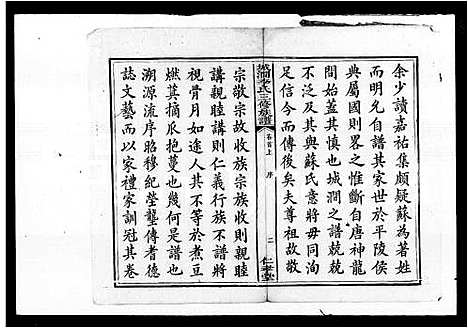 余少讀嘉祐集頗疑蘇為著姓
而明允自譜其家世於平陵侯
典屬國則畧之惟斷自唐神龍
間始蓋其慎也城澗之譜兢兢
不泛及其與蘇氏意將毋同洵
足信今而傳後矣夫尊祖故敬
城澗李氏三修族譜
卷首上
序
二
仁孝堂
宗敬宗故收族宗族收則親睦
講親睦講則仁義行族不譜將
視骨月如途人其不等於煮豆
燃萁摘瓜抱蔓也幾何是譜也
溯源流序昭穆紀塋壟傳者德
誌文藝而以家禮家訓冠其卷